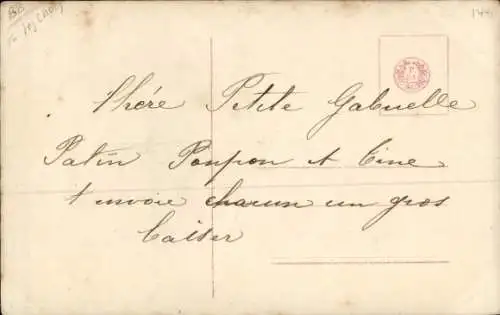 Chère Petite Gabrielle
Patin Poupon et Cine
t envoie chacun un gros
baiser